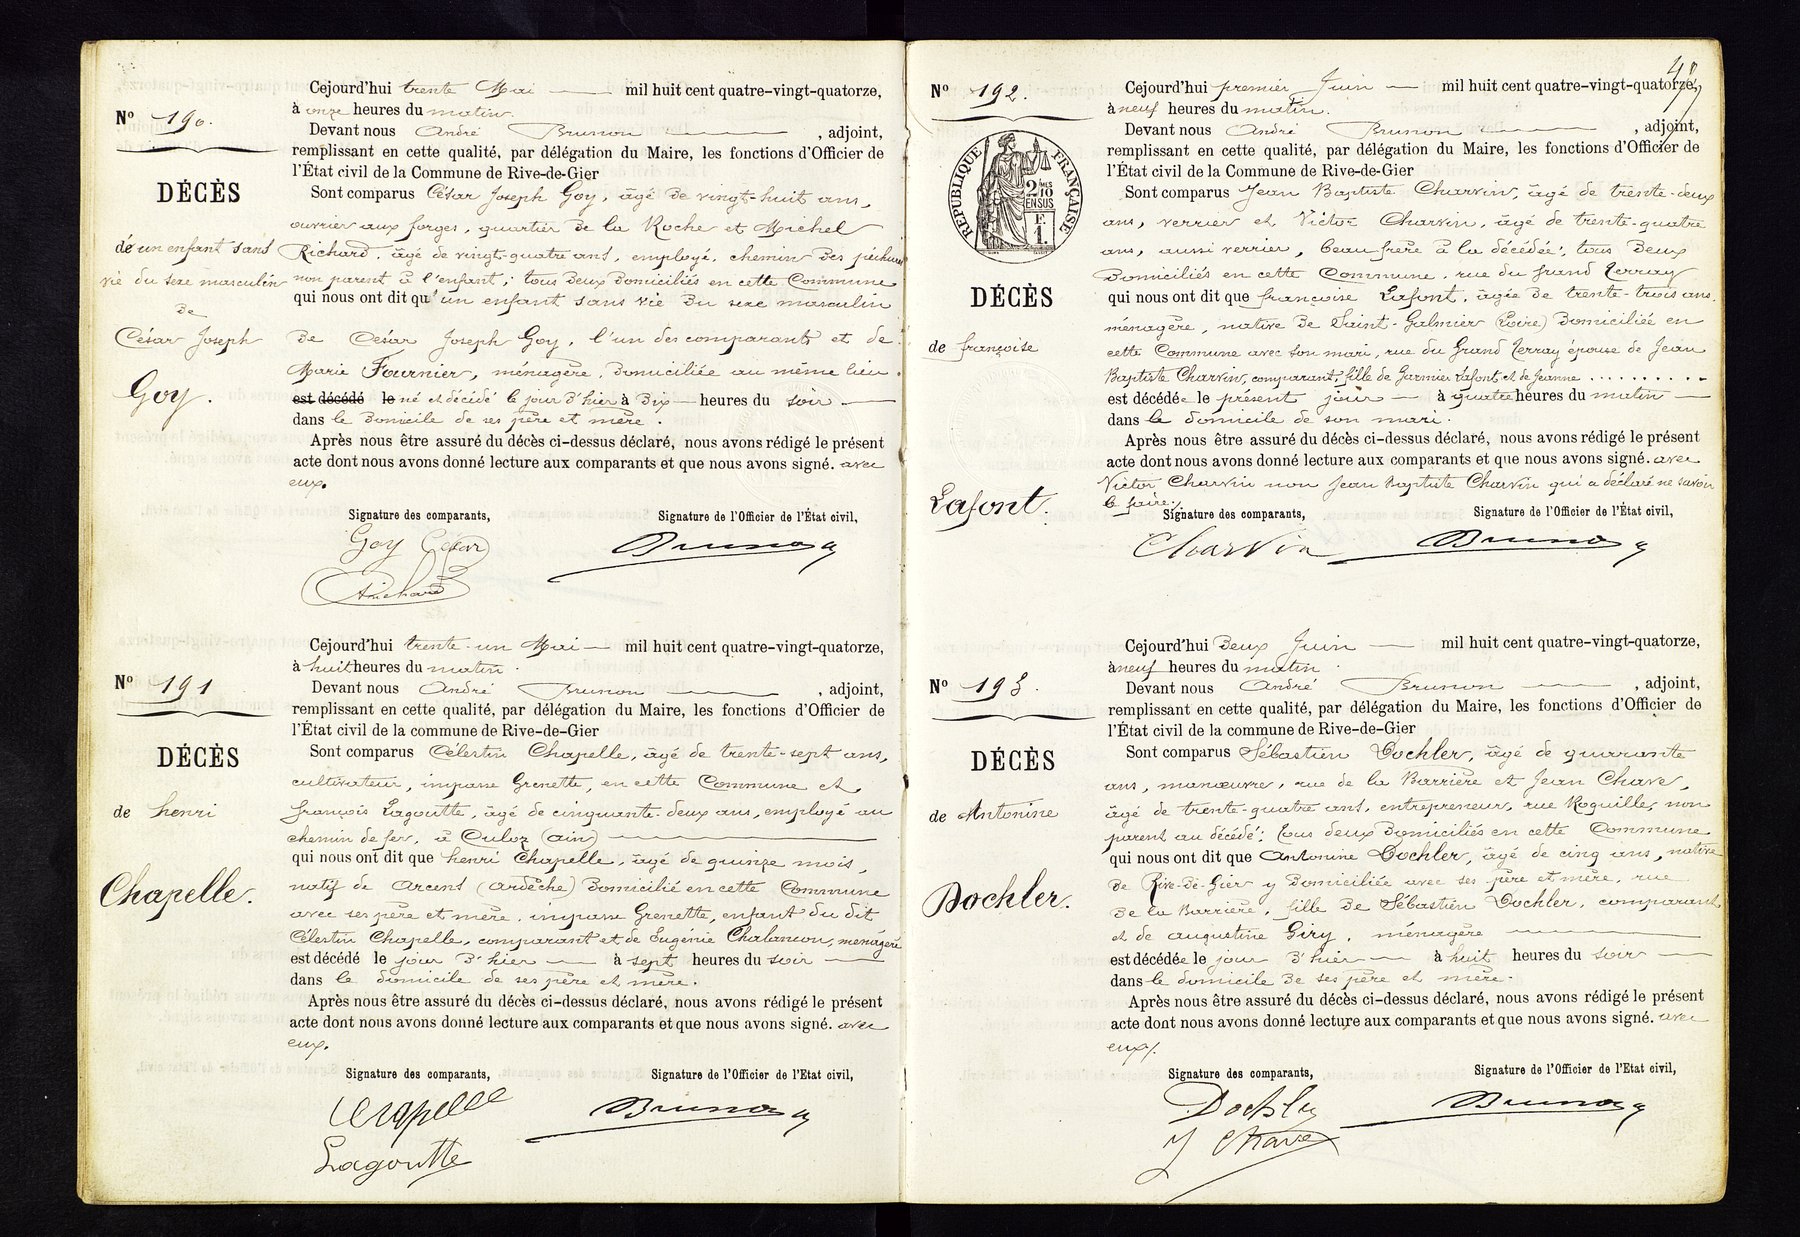 Nº 190.
DÉCÈS
de un enfant sans
vie du sexe masculin
de
César Joseph
Goy.
Cejourd'hui trente Mai mil huit cent quatre-vingt-quatorze,
à onze heures du matin.
Devant nous André Brunon, adjoint,
remplissant en cette qualité, par délégation du Maire, les fonctions d'Officier de
l'État civil de la Commune de Rive-de-Gier
Sont comparus César Joseph Goy, âgé de vingt-huit ans,
ouvrier aux forges, quartier de la Roche et Michel
Richard, âgé de vingt-quatre ans, employé, chemin des
non parent à l'enfant; tous deux domiciliés en cette Commune
qui nous ont dit qu'un enfant sans vie du sexe masculin
de César Joseph Goy, l'un des comparants et de
Marie Fournier, ménagère, domiciliée au même lieu.
est décédé le né et décédé le jour d'hier à dix heures du soir
dans le domicile de ses père et mère.
Après nous être assuré du décès ci-dessus déclaré, nous avons rédigé le présent
acte dont nous avons donné lecture aux comparants et que nous avons signé. avec
eux.
Signature des comparants, Signature de l'Officier de l'État civil,
Goy César Brunon
Richard
Nº 191
DÉCÈS
de henri
Chapelle.
Cejourd'hui trente-un Mai mil huit cent quatre-vingt-quatorze,
à huit heures du matin.
Devant nous André Brunon, adjoint,
remplissant en cette qualité, par délégation du Maire, les fonctions d'Officier de
l'État civil de la commune de Rive-de-Gier
Sont comparus Célestin Chapelle, âgé de trente-sept ans,
cultivateur, impasse Grenette, en cette Commune et
françois Lagoutte, âgé de cinquante-deux ans, employé au
chemin de fer, à Culoz (ain)
qui nous ont dit que henri Chapelle, âgé de quinze mois,
natif de Arcens (ardèche) domicilié en cette Commune
avec ses père et mère, impasse Grenette, enfant du dit
Célestin Chapelle, comparant et de Eugénie Chalancon, ménagère
est décédé le jour d'hier à sept heures du soir
dans le domicile de ses père et mère.
Après nous être assuré du décès ci-dessus déclaré, nous avons rédigé le présent
acte dont nous avons donné lecture aux comparants et que nous avons signé. avec
eux.
Signature des comparants, Signature de l'Officier de l'Etat civil,
Chapelle Brunon
Lagoutte
Nº 192.
RÉPUBLIQUE FRANÇAISE
2 10MES
EN SUS
F.
1.
DÉCÈS
de françoise
Lafont.
Cejourd'hui premier Juin mil huit cent quatre-vingt-quatorze,
à neuf heures du matin.
Devant nous André Brunon, adjoint,
remplissant en cette qualité, par délégation du Maire, les fonctions d'Officier de
l'État civil de la Commune de Rive-de-Gier
Sont comparus Jean Baptiste Charvin, âgé de trente-deux
ans, verrier et Victor Charvin, âgé de trente-quatre
ans, aussi verrier, beau frère à la décédée; tous deux
domiciliés en cette Commune, rue du grand Zerray
qui nous ont dit que françoise Lafont, âgée de trente-trois ans,
ménagère, native de Saint-Galmier (Loire) domiciliée en
cette Commune avec son mari, rue du Grand Zerray épouse de Jean
Baptiste Charvin, comparant, fille de Garnier Lafont et de Jeanne . . . . . . . . .
est décédée le présent jour à quatre heures du matin
dans le domicile de son mari.
Après nous être assuré du décès ci-dessus déclaré, nous avons rédigé le présent
acte dont nous avons donné lecture aux comparants et que nous avons signé. avec
Victor Charvin non Jean Baptiste Charvin qui a déclaré ne savoir
le faire./.
Signature des comparants, Signature de l'Officier de l'État civil,
Charvin Brunon
Nº 193.
DÉCÈS
de Antonine
Dochler.
Cejourd'hui deux Juin mil huit cent quatre-vingt-quatorze,
à neuf heures du matin.
Devant nous André Brunon, adjoint,
remplissant en cette qualité, par délégation du Maire, les fonctions d'Officier de
l'État civil de la commune de Rive-de-Gier
Sont comparus Sébastien Dochler, âgé de quarante
ans, manœuvre, rue de la Barrière et Jean Chave,
âgé de trente-quatre ans, entrepreneur, rue Roquille, non
parent au décédé; tous deux domiciliés en cette Commune
qui nous ont dit que Antonine Dochler, âgé de cinq ans, native
de Rive-de-Gier y domiciliée avec ses père et mère, rue
de la Barrière, fille de Sébastien Dochler, comparant
et de augustine Giry, ménagère
est décédée le jour d'hier à huit heures du soir
dans le domicile de ses père et mère.
Après nous être assuré du décès ci-dessus déclaré, nous avons rédigé le présent
acte dont nous avons donné lecture aux comparants et que nous avons signé. avec
eux/.
Signature des comparants, Signature de l'Officier de l'Etat civil,
Dochler Brunon
J Chave